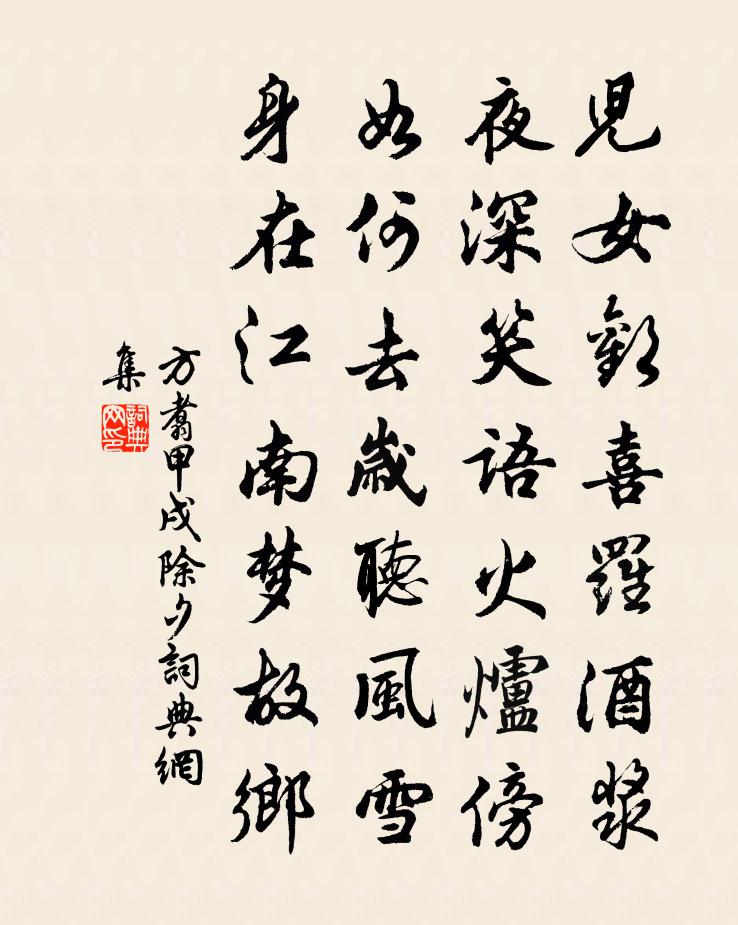 児女歡喜羅酒漿
夜深笑語火爐傍
如何去歲聽風雪
身在江南梦故鄉
方翥甲戌除夕詞典網
集
詞典
网印